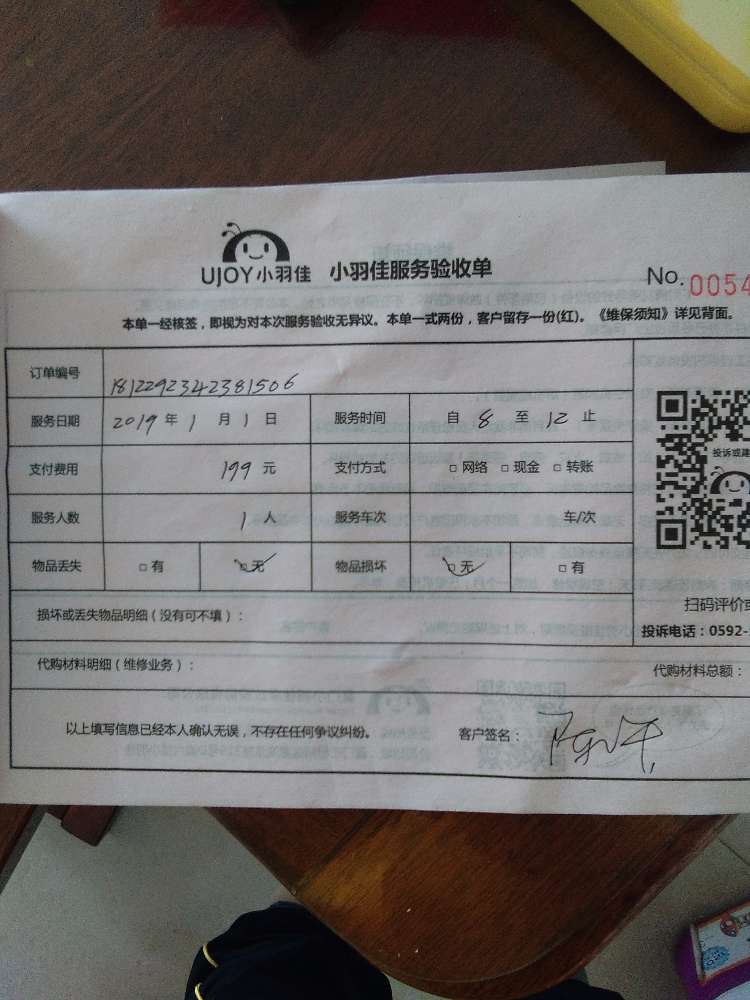 UJOY小羽佳 小羽佳服务验收单 No.0054
本单一经核签，即视为对本次服务验收无异议。本单一式两份，客户留存一份(红)。《维保须知》详见背面。
订单编号 1812292342381506
服务日期 2019年1月1日 服务时间 自8至12止
支付费用 199元 支付方式 □网络 □现金 □转账
投诉或建
服务人数 1人 服务车次 车/次
物品丢失 □有 □无 物品损坏 □无 □有
损坏或丢失物品明细（没有可不填）：
扫码评价或
投诉电话：0592-
代购材料明细（维修业务）： 代购材料总额：
以上填写信息已经本人确认无误，不存在任何争议纠纷。 客户签名：